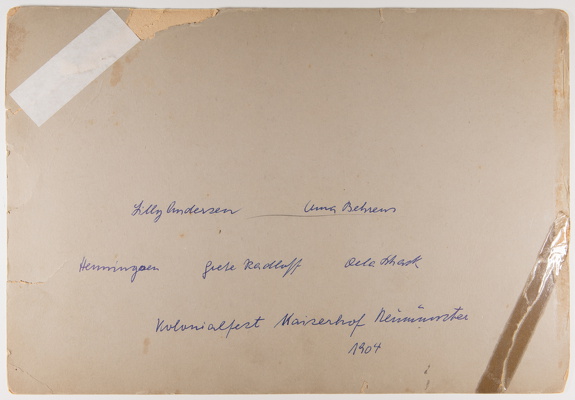 Lilly Andersen Anna Behrens
Henningsen Grete Radloff
Kolonialfest Kaiserhof Neumünster
1904